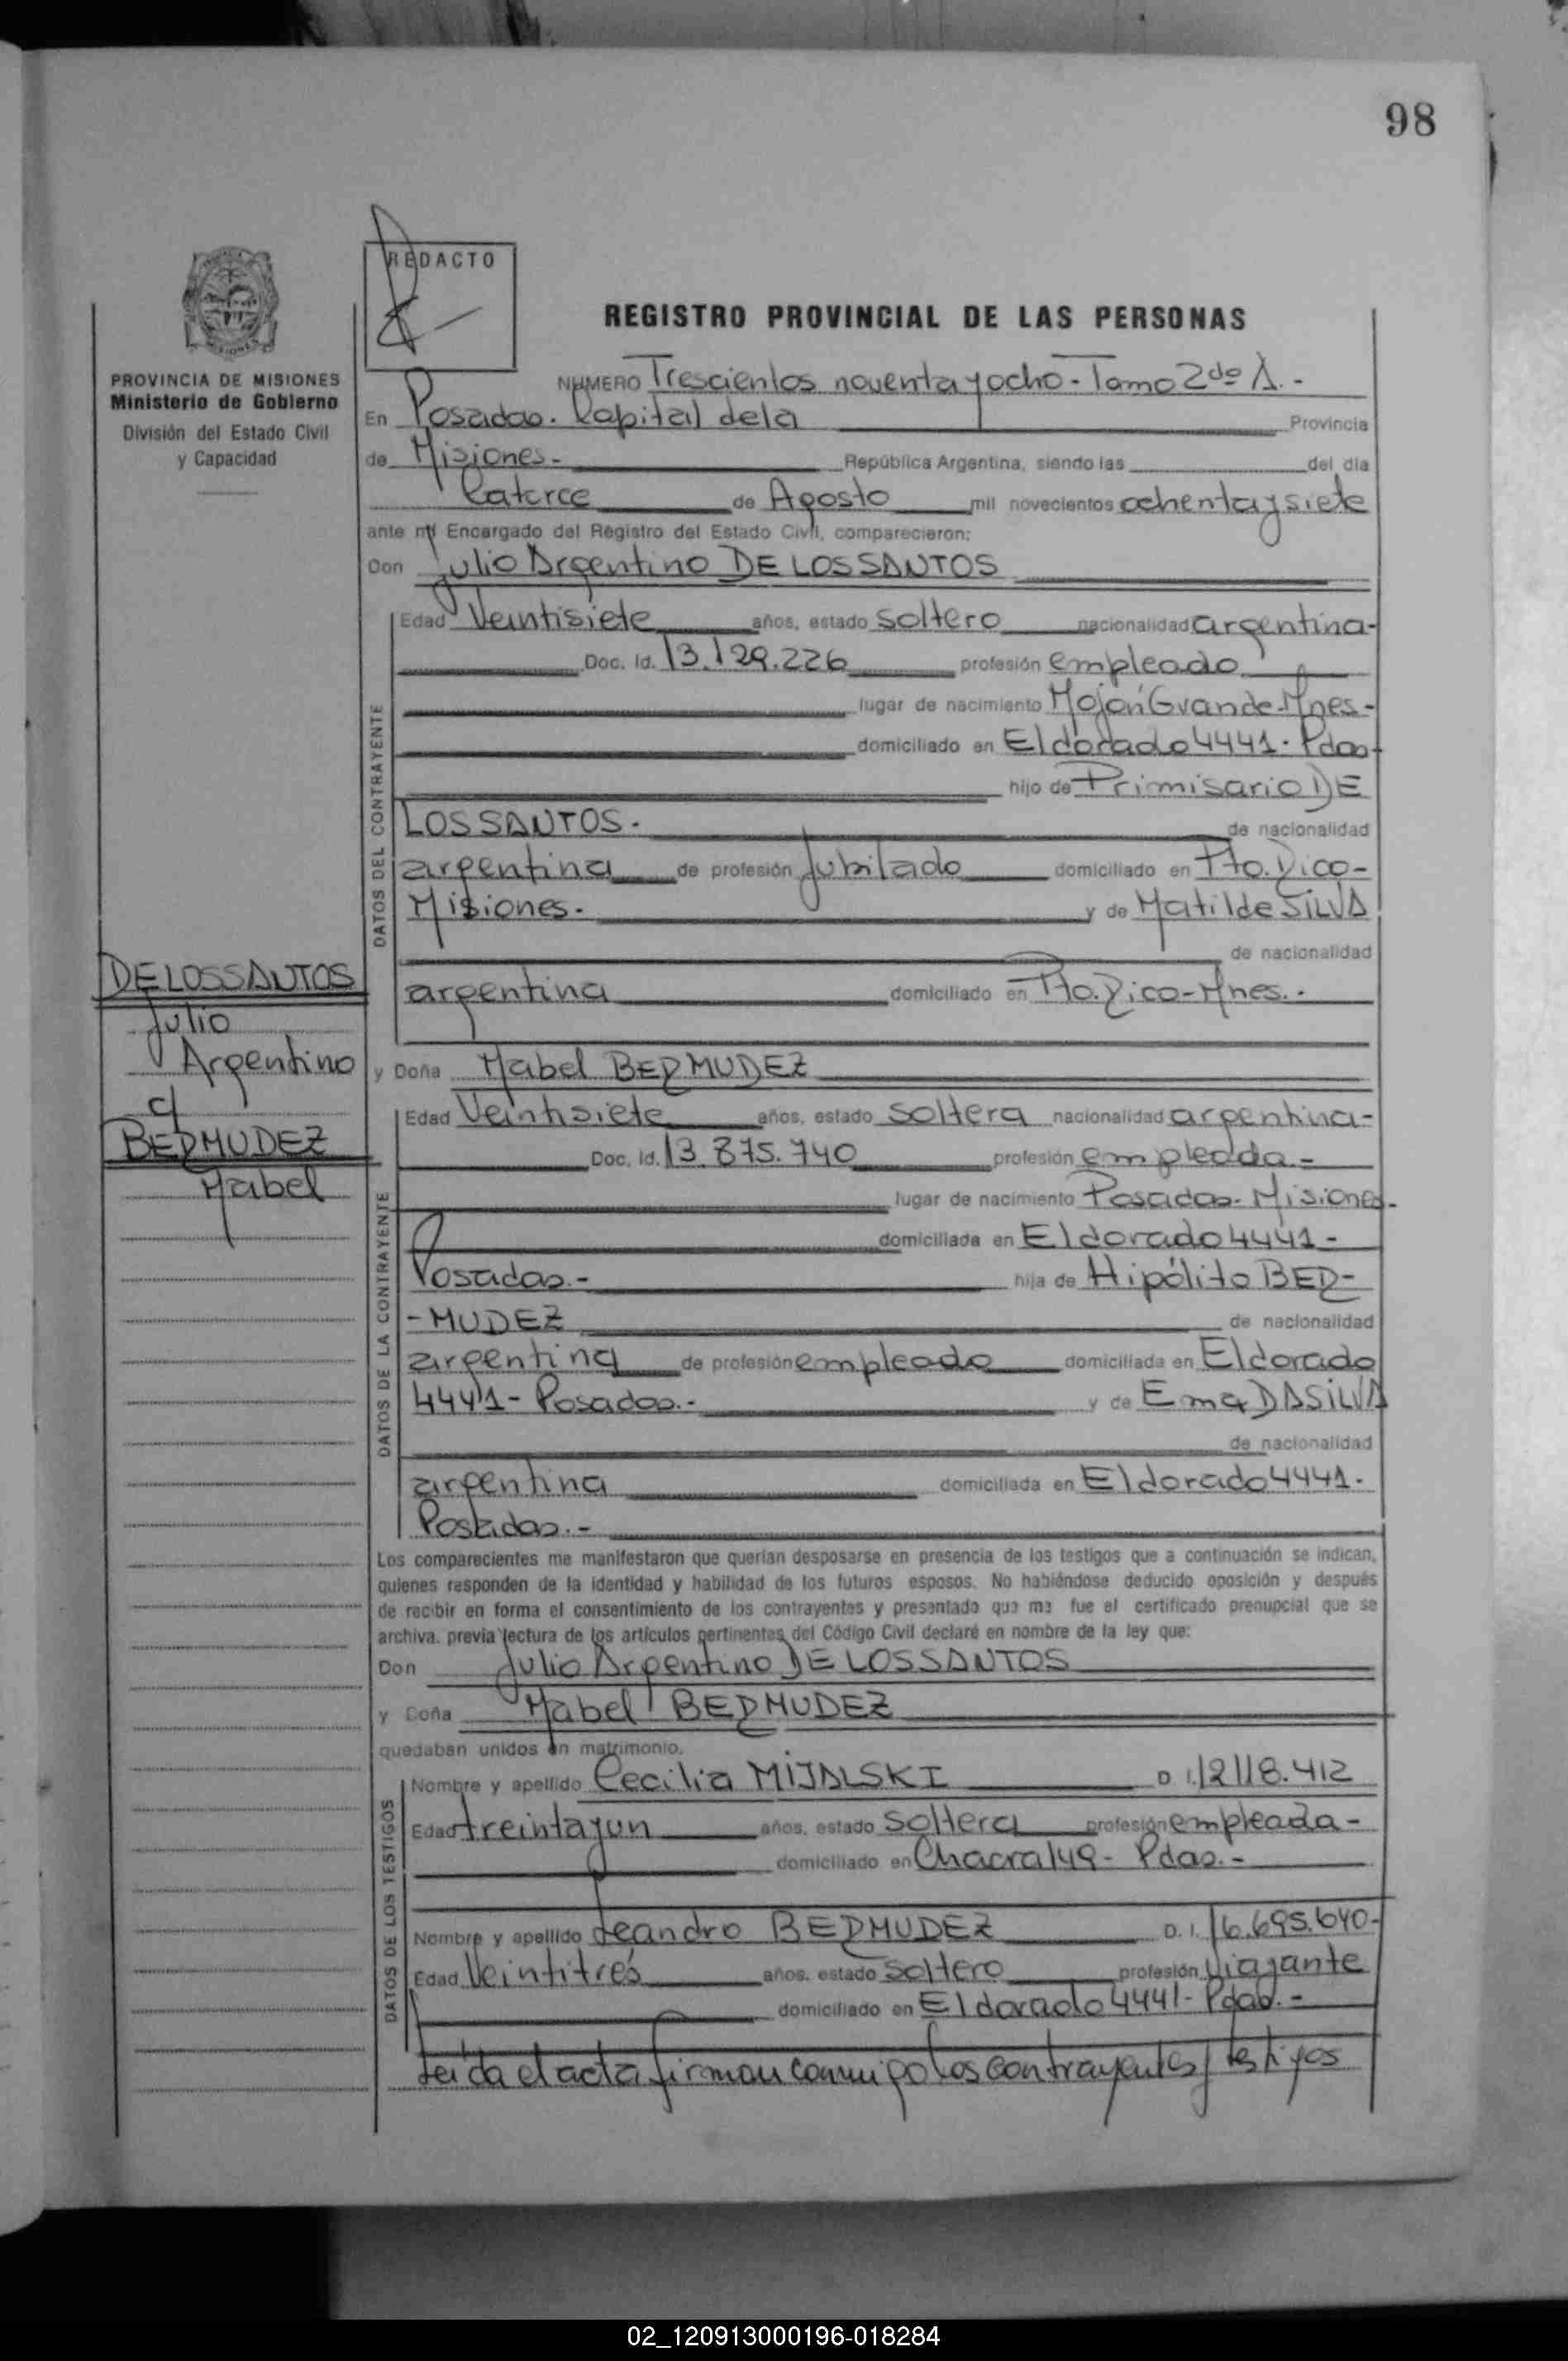 98
REDACTO
REGISTRO PROVINCIAL DE LAS PERSONAS
PROVINCIA DE MISIONES
Ministerio de Gobierno
División del Estado Civil
y Capacidad
NUMERO Trescientos noventa y ocho - Tomo 2do A. -
En Posadas. Capital de la Provincia
de Misiones - República Argentina, siendo las del día
Catorce de Agosto mil novecientos ochenta y siete
ante mí Encargado del Registro del Estado Civil, comparecieron:
Don Julio Argentino DE LOS SANTOS
DATOS DEL CONTRAYENTE
Edad Veintisiete años, estado soltero nacionalidad argentina -
Doc. Id. 13.129.226 profesión empleado
lugar de nacimiento Mojón Grande - Mnes -
domiciliado en Eldorado 4441 - Pdas -
hijo de Primisario DE
LOS SANTOS - de nacionalidad
argentina de profesión Jubilado domiciliado en Pto. Rico -
Misiones - y de Matilde SILVA
de nacionalidad
argentina domiciliado en Pto. Rico - Mnes. -
DE LOS SANTOS
Julio
Argentino
c/
BERMUDEZ
Mabel
y Doña Mabel BERMUDEZ
DATOS DE LA CONTRAYENTE
Edad Veintisiete años, estado soltera nacionalidad argentina -
Doc. Id. 13.875.740 profesión empleada -
lugar de nacimiento Posadas - Misiones -
domiciliada en Eldorado 4441 -
Posadas. - hija de Hipólito BER-
- MUDEZ de nacionalidad
argentina de profesión empleado domiciliada en Eldorado
4441 - Posadas. - y de Ema DASILVA
de nacionalidad
argentina domiciliada en Eldorado 4441 -
Posadas. -
Los comparecientes me manifestaron que querían desposarse en presencia de los testigos que a continuación se indican,
quienes responden de la identidad y habilidad de los futuros esposos. No habiéndose deducido oposición y después
de recibir en forma el consentimiento de los contrayentes y presentado que me fue el certificado prenupcial que se
archiva, previa lectura de los artículos pertinentes del Código Civil declaré en nombre de la ley que:
Don Julio Argentino DE LOS SANTOS
y Doña Mabel BERMUDEZ
quedaban unidos en matrimonio.
DATOS DE LOS TESTIGOS
Nombre y apellido Cecilia MIJALSKI D. I. 12118.412
Edad treinta y un años, estado soltera profesión empleada -
domiciliado en Chacra 149 - Pdas. -
Nombre y apellido Leandro BERMUDEZ D. I. 16.695.640 -
Edad Veintitrés años, estado soltero profesión Viajante
domiciliado en Eldorado 4441 - Pdas. -
Leída el acta firman conmigo los contrayentes y testigos
02_120913000196-018284